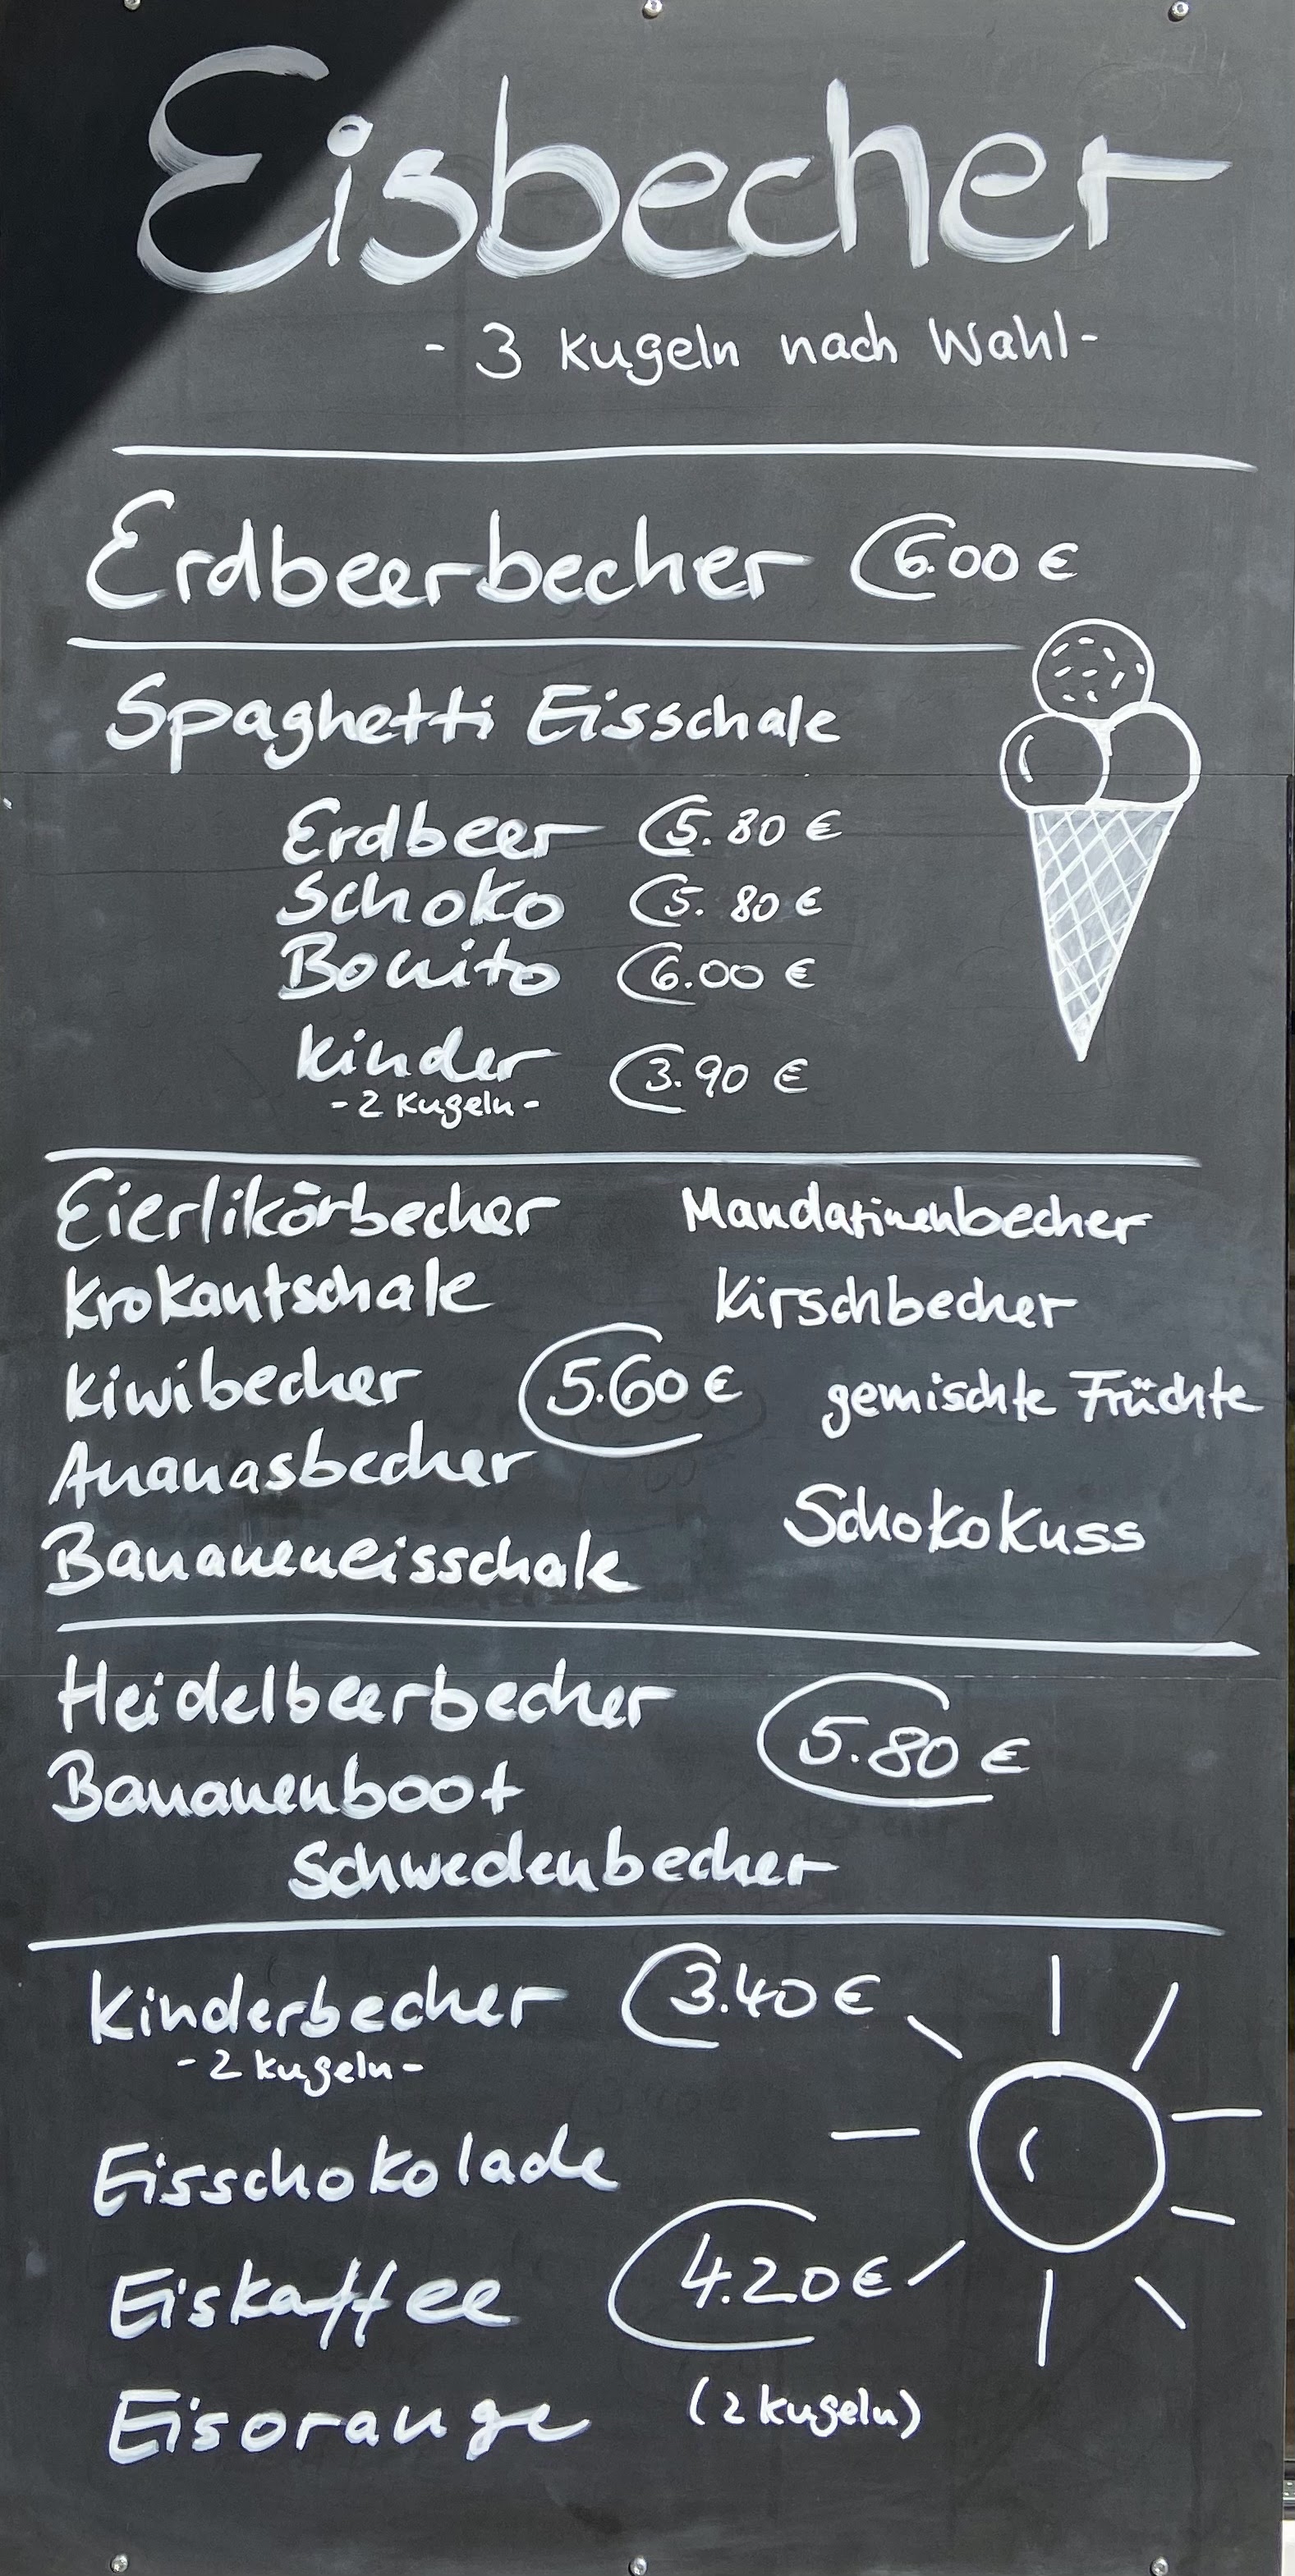 Eisbecher
- 3 Kugeln nach Wahl -
Erdbeerbecher 6.00 €
Spaghetti Eisschale
Erdbeer 5.80 €
Schoko 5.80 €
Bonito 6.00 €
Kinder 3.90 €
- 2 Kugeln -
Eierlikörbecher
Krokantschale
Kiwibecher
Ananasbecher
Bananeneisschale
5.60 €
Mandarinenbecher
Kirschbecher
gemischte Früchte
Schokokuss
Heidelbeerbecher
Bananenboot
Schwedenbecher
5.80 €
Kinderbecher 3.40 €
- 2 Kugeln -
Eisschokolade
Eiskaffee 4.20 €
Eisorange (2 Kugeln)